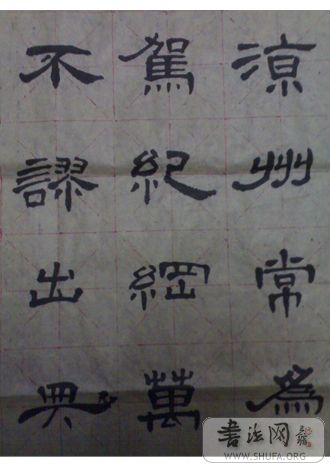 涼州常為
駕紀綱萬
不謬出典
書法网
WWW.SHUFA.ORG